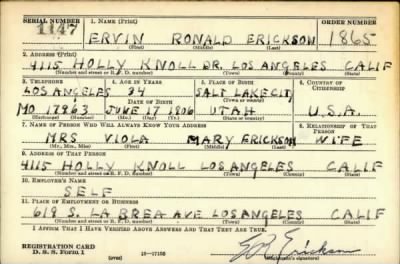 SERIAL NUMBER 1. NAME (Print) ORDER NUMBER
1147 ERVIN RONALD ERICKSON 1865
(First) (Middle) (Last)
2. ADDRESS (Print)
4115 HOLLY KNOLL DR. LOS ANGELES CALIF
(Number and street or R. F. D. number) (Town) (County) (State)
3. TELEPHONE 4. AGE IN YEARS 5. PLACE OF BIRTH 6. COUNTRY OF CITIZENSHIP
LOS ANGELES 34 SALT LAKE CITY
DATE OF BIRTH (Town or county)
MO 17963 JUNE 17 1906 UTAH U.S.A.
(Exchange) (Number) (Mo.) (Day) (Yr.) (State or country)
7. NAME OF PERSON WHO WILL ALWAYS KNOW YOUR ADDRESS 8. RELATIONSHIP OF THAT PERSON
MRS VIOLA MARY ERICKSON WIFE
(Mr., Mrs., Miss) (First) (Middle) (Last)
9. ADDRESS OF THAT PERSON
4115 HOLLY KNOLL LOS ANGELES CALIF
(Number and street or R. F. D. number) (Town) (County) (State)
10. EMPLOYER'S NAME
SELF
11. PLACE OF EMPLOYMENT OR BUSINESS
619 S. LA BREA AVE LOS ANGELES CALIF
(Number and street or R. F. D. number) (Town) (County) (State)
I AFFIRM THAT I HAVE VERIFIED ABOVE ANSWERS AND THAT THEY ARE TRUE.
REGISTRATION CARD
D. S. S. Form 1 (over) 16—17105 Erickson
(Registrant's signature)